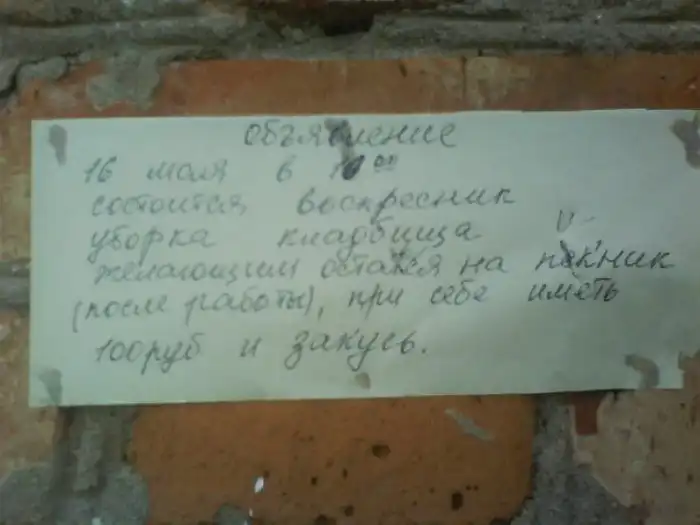 объявление
16 июля в 10 00
состоится воскресник
уборка кладбища
желающим остатся на пикник
(после работы), при себе иметь
100руб и закусь.